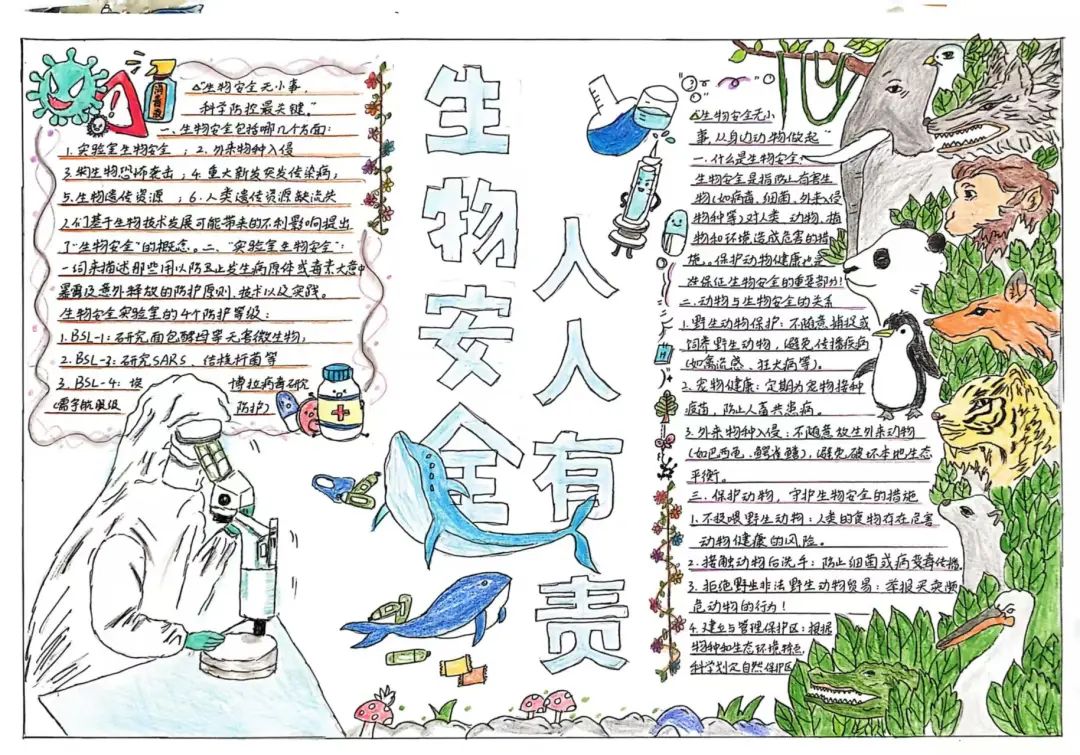 生物安全
人人有责
消毒液
△"生物安全无小事，
科学防控最关键。"
一、生物安全包括哪几个方面：
1.实验室生物安全；2.外来物种入侵
3.微生物恐怖袭击；4.重大新发突发传染病；
5.生物遗传资源；6.人类遗传资源缺流失
人们基于生物技术发展可能带来的不利影响提出
了"生物安全"的概念。二、"实验室生物安全"：
一词来描述那些用以防止发生病原体或毒素大意中
暴露及意外释放的防护原则、技术以及实践。
生物安全实验室的4个防护等级：
1.BSL-1：研究面包酵母等无害微生物；
2.BSL-3：研究SARS、结核杆菌等
3.BSL-4：埃 博拉病毒研究
(需宇航员级 防护)
△"生物安全无小
事，从身边动物做起"
一.什么是生物安全
生物安全是指防止有害生
物(如病毒、细菌、外来入侵
物种等)对人类、动物、植
物和环境造成危害的措
施。保护动物健康也是
在保证生物安全的重要部分!
二.动物与生物安全的关系
1.野生动物保护：不随意捕捉或
饲养野生动物，避免传播疾病
(如禽流感、狂犬病等)。
2.宠物健康：定期为宠物接种
疫苗，防止人畜共患病。
3.外来物种入侵：不随意放生外来动物
(如巴西龟、鳄雀鳝)，避免破坏本地生态
平衡。
三.保护动物，守护生物安全的措施
1.不投喂野生动物：人类的食物存在危害
动物健康的风险。
2.接触动物后洗手：防止细菌或病毒传播.
3.拒绝野生非法野生动物贸易：举报买卖濒
危动物的行为!
4.建立与管理保护区：根据
物种和生态环境特点，
科学划定自然保护区